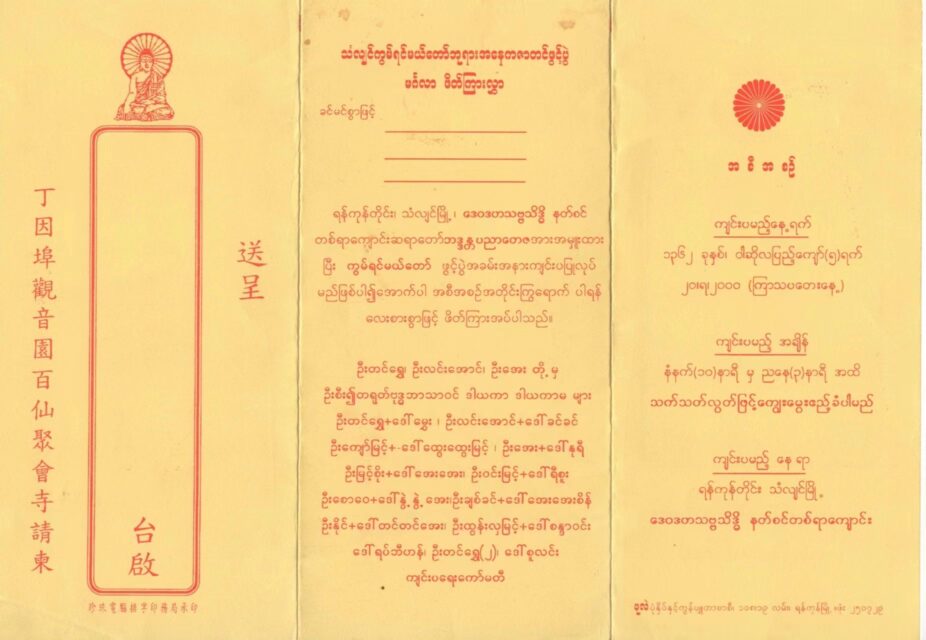 丁因埠觀音園百仙聚會寺請柬
送呈
台啟
珍玖電腦植字印務局承印
သံလျင်ကွမ်ရင်မယ်တော်ဘုရားအနေကဇာတင်ဖွင့်ပွဲ
မင်္ဂလာ ဖိတ်ကြားလွှာ
ခင်မင်စွာဖြင့်
ရန်ကုန်တိုင်း၊ သံလျင်မြို့၊ ဒေဝဒဟသဗ္ဗသိဒ္ဓိ နတ်စင်
တစ်ရာကျောင်းဆရာတော်ဘဒ္ဒန္တပညာတေဇအားအမှူးထား
ပြီး ကွမ်ရင်မယ်တော် ဖွင့်ပွဲအခမ်းအနားကျင်းပပြုလုပ်
မည်ဖြစ်ပါ၍အောက်ပါ အစီအစဉ်အတိုင်းကြွရောက် ပါရန်
လေးစားစွာဖြင့် ဖိတ်ကြားအပ်ပါသည်။
ဦးတင်ရွှေ၊ ဦးလင်းအောင်၊ ဦးအေး တို့မှ
ဦးစီး၍တရုတ်ဗုဒ္ဓဘာသာဝင် ဒါယကာ ဒါယကာမ များ
ဦးတင်ရွှေ+ဒေါ်မွှေး ၊ ဦးလင်းအောင်+ဒေါ်ခင်ခင်
ဦးကျော်မြင့်+-ဒေါ်ထွေးထွေးမြင့် ၊ ဦးအေး+ဒေါ်နုရီ
ဦးမြင့်စိုး+ဒေါ်အေးအေး၊ ဦးဝင်းမြင့်+ဒေါ်ရီစူး
ဦးစောဝေ+ဒေါ်နွဲ့နွဲ့အေး၊ဦးချစ်ခင်+ဒေါ်အေးအေးစိန်
ဦးနိုင်+ဒေါ်တင်တင်အေး၊ ဦးထွန်းလှမြင့်+ဒေါ်စန္ဒာဝင်း
ဒေါ်ရပ်ဘီဟန်၊ ဦးတင်ရွှေ(၂)၊ ဒေါ်စုလင်း
ကျင်းပရေးကော်မတီ
အ စီ အ စဉ်
ကျင်းပမည့်နေ့ရက်
၁၃၆၂ ခုနှစ်၊ ဝါဆိုလပြည့်ကျော်(၅)ရက်
၂၀၊၇၊၂၀၀၀ (ကြာသပတေးနေ့)
ကျင်းပမည့် အချိန်
နံနက်(၁၀)နာရီ မှ ညနေ(၃)နာရီ အထိ
သက်သတ်လွတ်ဖြင့်ကျွေးမွေးဧည့်ခံပါမည်
ကျင်းပမည့် နေ ရာ
ရန်ကုန်တိုင်း သံလျင်မြို့
ဒေဝဒဟသဗ္ဗသိဒ္ဓိ နတ်စင်တစ်ရာကျောင်း